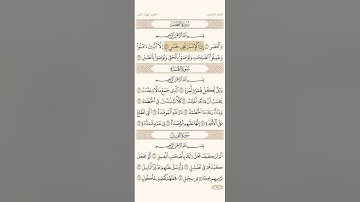 سُورَةُ العَصْرِ
بِسْمِ ٱللَّهِ ٱلرَّحْمَٰنِ ٱلرَّحِيمِ
وَٱلْعَصْرِ ١ إِنَّ ٱلْإِنسَٰنَ لَفِى خُسْرٍ ٢ إِلَّا ٱلَّذِينَ ءَامَنُوا۟
وَعَمِلُوا۟ ٱلصَّٰلِحَٰتِ وَتَوَاصَوْا۟ بِٱلْحَقِّ وَتَوَاصَوْا۟ بِٱلصَّبْرِ ٣
سُورَةُ الهُمَزَةِ
بِسْمِ ٱللَّهِ ٱلرَّحْمَٰنِ ٱلرَّحِيمِ
وَيْلٌ لِّكُلِّ هُمَزَةٍ لُّمَزَةٍ ١ ٱلَّذِى جَمَعَ مَالًا وَعَدَّدَهُۥ ٢
يَحْسَبُ أَنَّ مَالَهُۥٓ أَخْلَدَهُۥ ٣ كَلَّا لَيُنۢبَذَنَّ فِى ٱلْحُطَمَةِ ٤
وَمَآ أَدْرَىٰكَ مَا ٱلْحُطَمَةُ ٥ نَارُ ٱللَّهِ ٱلْمُوقَدَةُ ٦ ٱلَّتِى تَطَّلِعُ
عَلَى ٱلْأَفْـِٔدَةِ ٧ إِنَّهَا عَلَيْهِم مُّؤْصَدَةٌ ٨ فِى عَمَدٍ مُّمَدَّدَةٍۭ ٩
سُورَةُ الفِيلِ
بِسْمِ ٱللَّهِ ٱلرَّحْمَٰنِ ٱلرَّحِيمِ
أَلَمْ تَرَ كَيْفَ فَعَلَ رَبُّكَ بِأَصْحَٰبِ ٱلْفِيلِ ١ أَلَمْ يَجْعَلْ
كَيْدَهُمْ فِى تَضْلِيلٍ ٢ وَأَرْسَلَ عَلَيْهِمْ طَيْرًا أَبَابِيلَ ٣
تَرْمِيهِم بِحِجَارَةٍ مِّن سِجِّيلٍ ٤ فَجَعَلَهُمْ كَعَصْفٍ مَّأْكُولٍۭ ٥